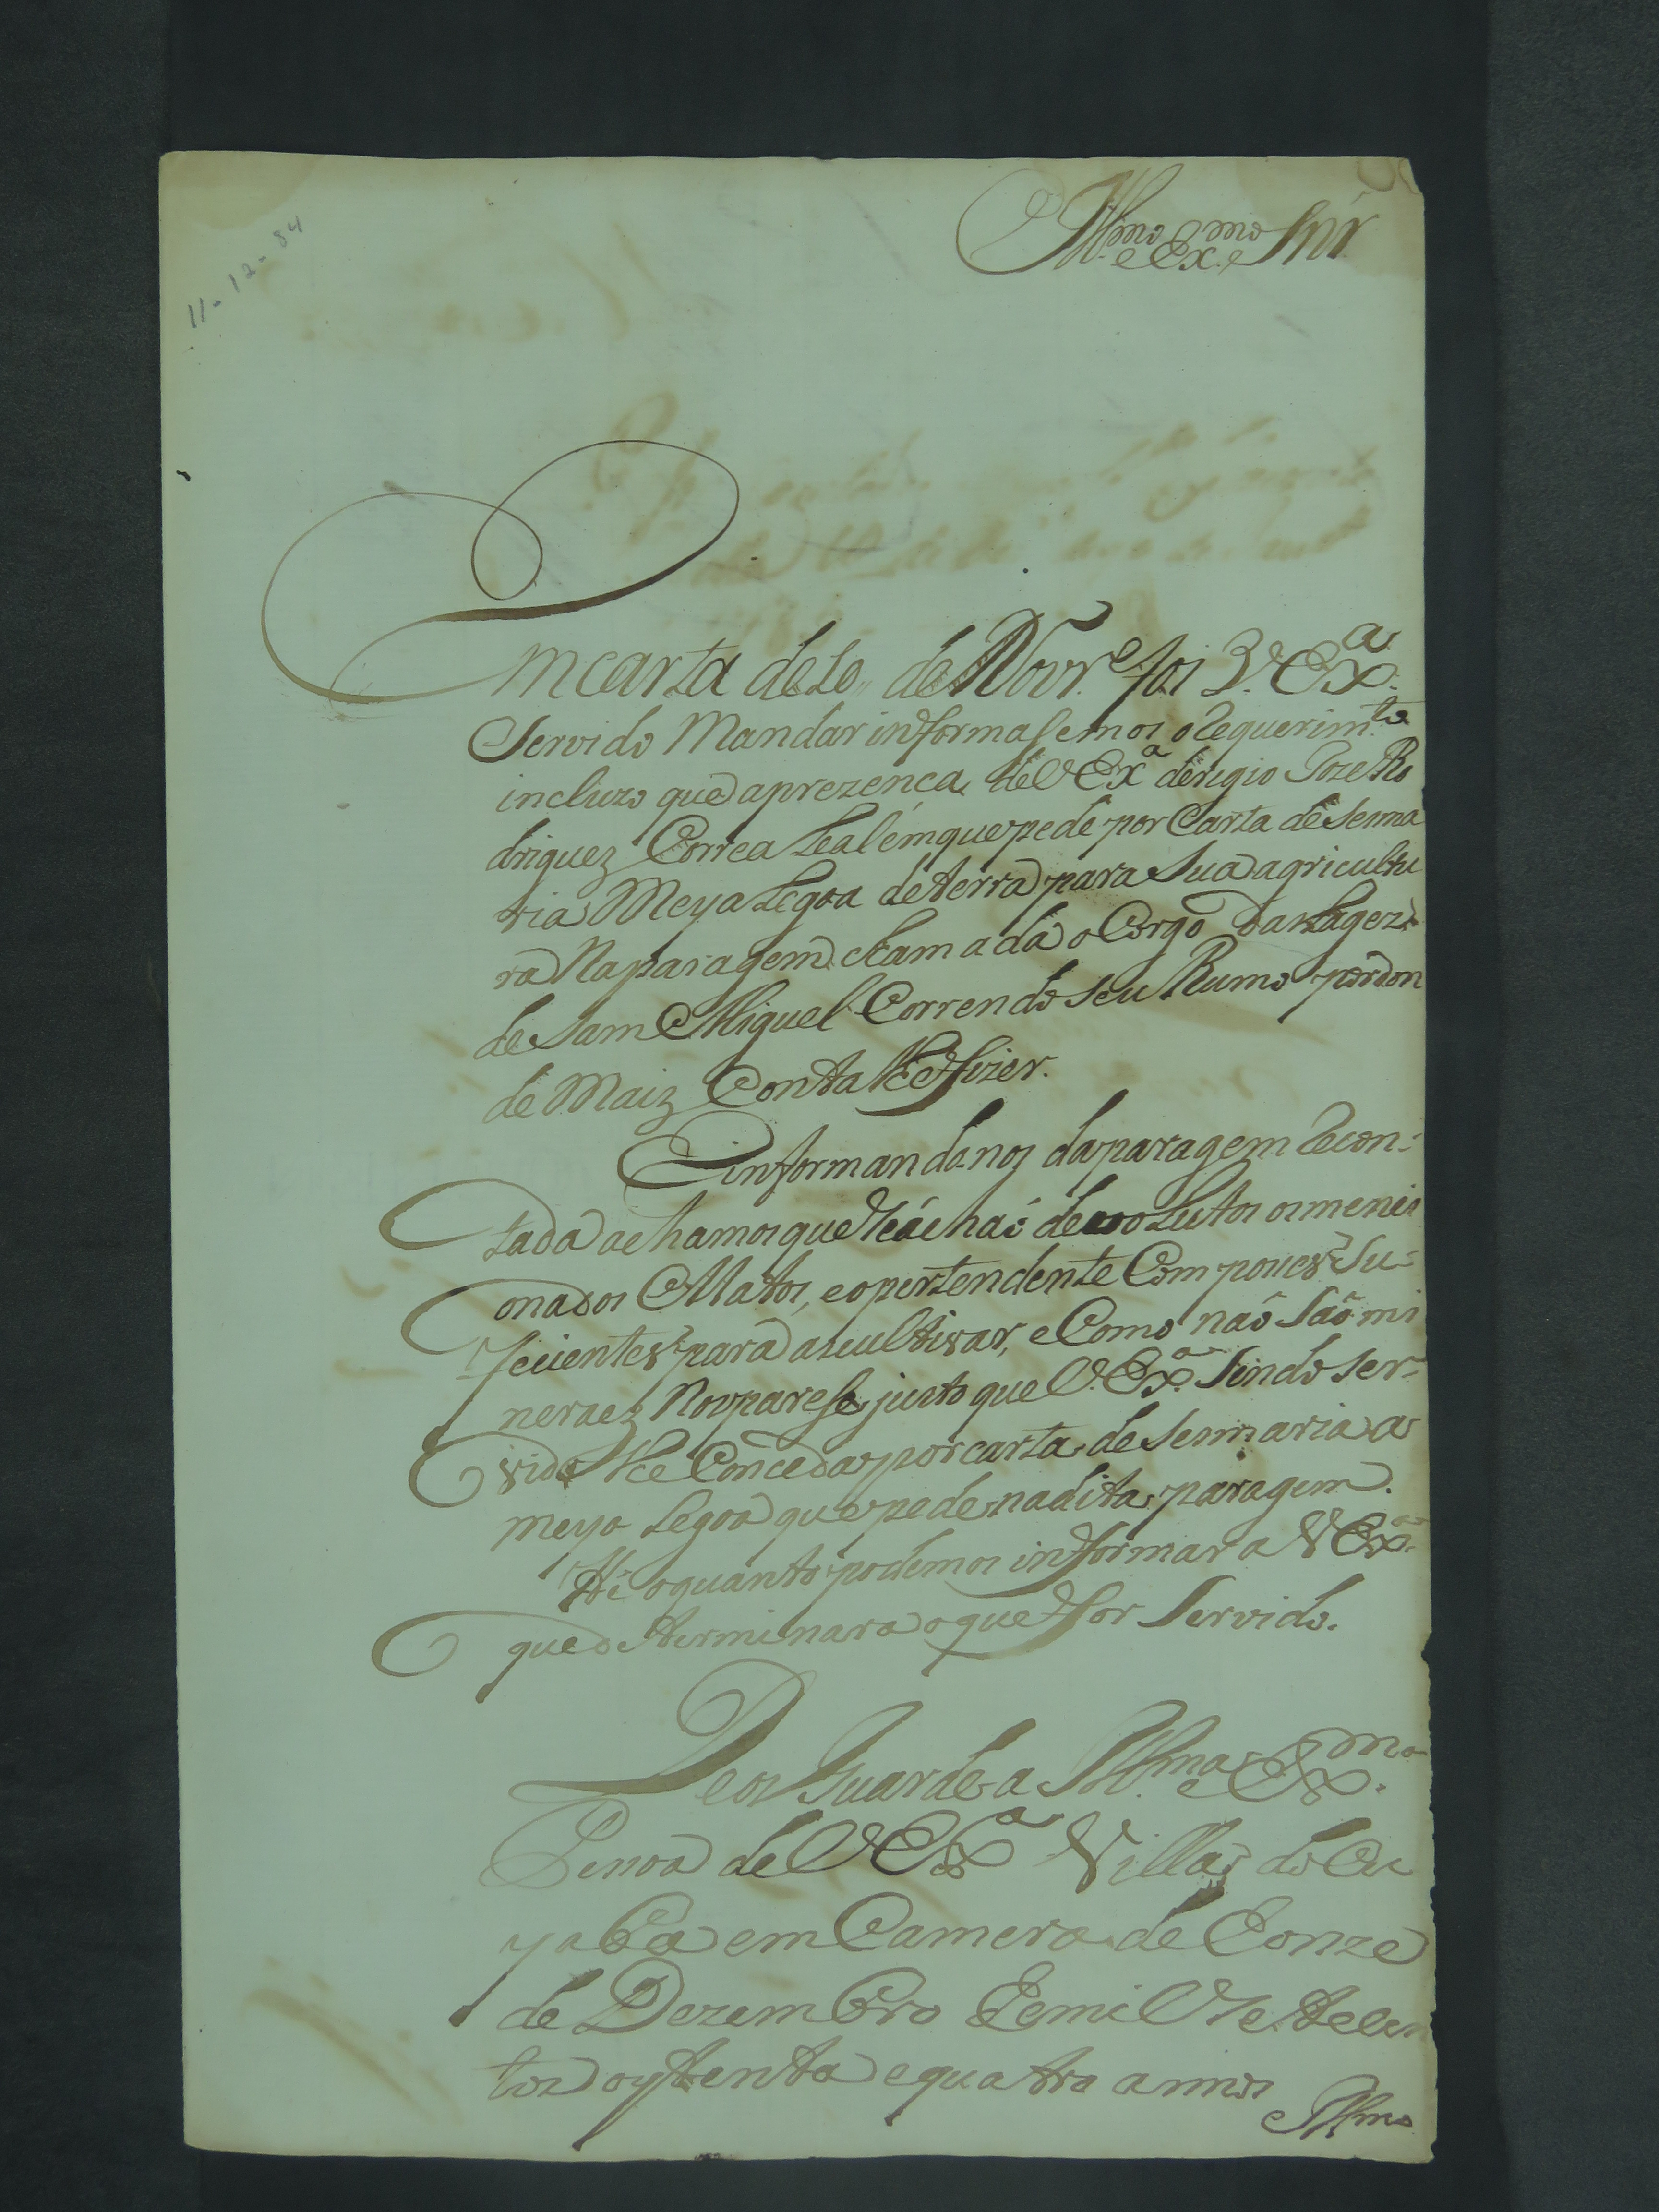 11-12-84
Ill.mo e Ex.mo Snr
Em carta de 10 de Novr.e foi V. Ex.a
Servido Mandar informasemos o Requerim.to
incluzo que a prezenca de V Ex.a derigio Joze Ro
driguez Correa Leal em que pede por Carta de Sesma
ria Meya Legoa de terra para Sua agricultu
ra Na paragem chamada o Corgo da
de Sam Miguel Correndo seu Rumo por don
de Maiz Conta lhe fizer.
E informando nos da paragem Recon-
tada achamos que se achaó devolutos os menci
onados Matos, e o pertendente Com pouces Su-
fecientes para as cultivar, e Como naó Saó mi
neraez Nos parese justo que V. Ex.a Sindo ser-
vido lhe Conceda por carta de Sesmaria a
meya Legoa que pede na dita paragem.
Hé o quanto podemos informar a V Ex.a
que determinara o que for Servido.
Deos Guarde a Ill.ma e Ex.ma
Pesoa de V Ex.a Villa do Cu
yaba em Camera de Eonze
de Dezembro de mil e setesen
tos oytenta e quatro annos
Illmo